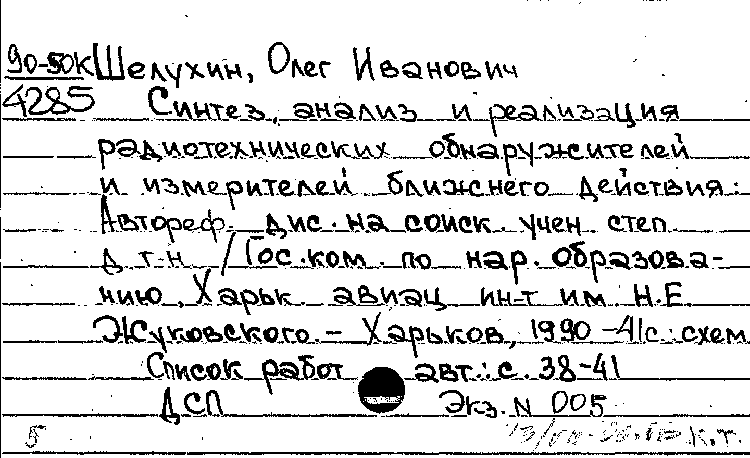 90-50К Шелухин, Олег Иванович
4285 Синтез, анализ и реализация
радиотехнических обнаружителей
и измерителей ближнего действия:
Автореф. дис. на соиск. учен степ
д т.н /Гос.ком. по нар. образова-
нию, Харьк. авиац ин-т им Н.Е.
Жуковского. – Харьков, 1990 –41с.:схем
Список работ авт.: с. 38-41
ДСП Экз. N 005
5 к.т.